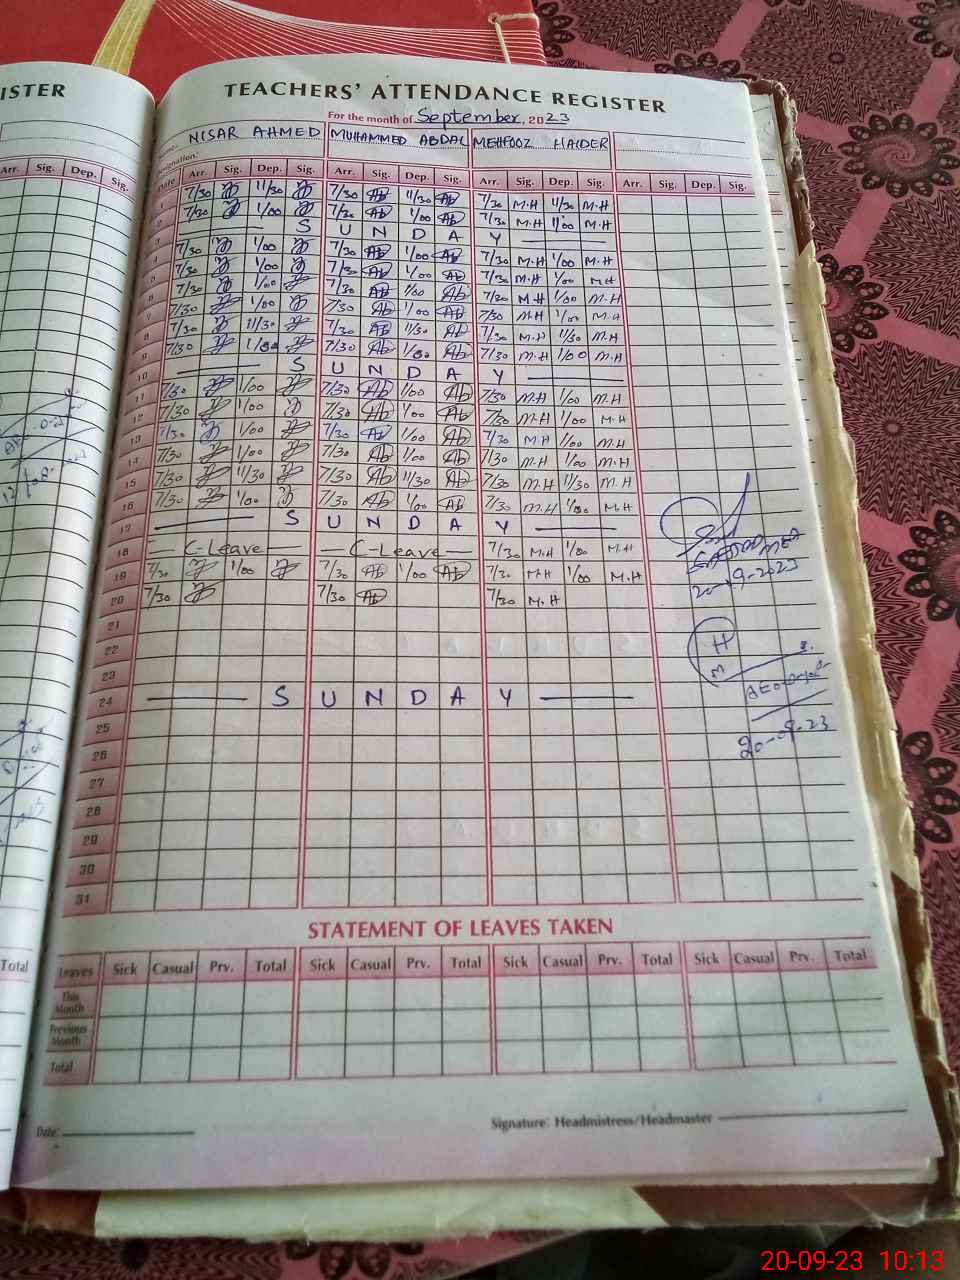 ISTER
TEACHERS' ATTENDANCE REGISTER
For the month of September, 2023
NISAR AHMED MUHAMMED ABDAL MEHFOOZ HAIDER
Designation:
Arr. Sig. Dep. Sig.
Date Arr. Sig. Dep. Sig. Arr. Sig. Dep. Sig. Arr. Sig. Dep. Sig. Arr. Sig. Dep. Sig.
1 7/30 11/30 7/30 Ab 11/30 Ab 7/30 M.H 11/30 M.H
2 7/30 1/00 7/30 Ab 1/00 Ab 7/30 M.H 1/00 M.H
3 S U N D A Y
4 7/30 1/00 7/30 Ab 1/00 Ab 7/30 M.H 1/00 M.H
5 7/30 1/00 7/30 Ab 1/00 Ab 7/30 M.H 1/00 M.H
6 7/30 1/00 7/30 Ab 1/00 Ab 7/30 M.H 1/00 M.H
7 7/30 1/00 7/30 Ab 1/00 Ab 7/30 M.H 1/00 M.H
8 7/30 11/30 7/30 Ab 11/30 Ab 7/30 M.H 11/30 M.H
9 7/30 1/00 7/30 Ab 1/00 Ab 7/30 M.H 1/00 M.H
10 S U N D A Y
11 7/30 1/00 7/30 Ab 1/00 Ab 7/30 M.H 1/00 M.H
12 7/30 1/00 7/30 Ab 1/00 Ab 7/30 M.H 1/00 M.H
13 7/30 1/00 7/30 Ab 1/00 Ab 7/30 M.H 1/00 M.H
14 7/30 1/00 7/30 Ab 1/00 Ab 7/30 M.H 1/00 M.H
15 7/30 11/30 7/30 Ab 11/30 Ab 7/30 M.H 11/30 M.H
16 7/30 1/00 7/30 Ab 1/00 Ab 7/30 M.H 1/00 M.H
17 S U N D A Y
18 C-Leave C-Leave 7/30 M.H 1/00 M.H
19 7/30 1/00 7/30 Ab 1/00 Ab 7/30 M.H 1/00 M.H
20 7/30 7/30 Ab 7/30 M.H
20-9-2023
21
22
H
23
M
24 S U N D A Y
25
20-09-23
26
27
28
29
30
31
STATEMENT OF LEAVES TAKEN
Total
Leaves Sick Casual Prv. Total Sick Casual Prv. Total Sick Casual Prv. Total Sick Casual Prv. Total
This Month
Previous Month
Total
Date:
Signature: Headmistress/Headmaster
20-09-23 10:13